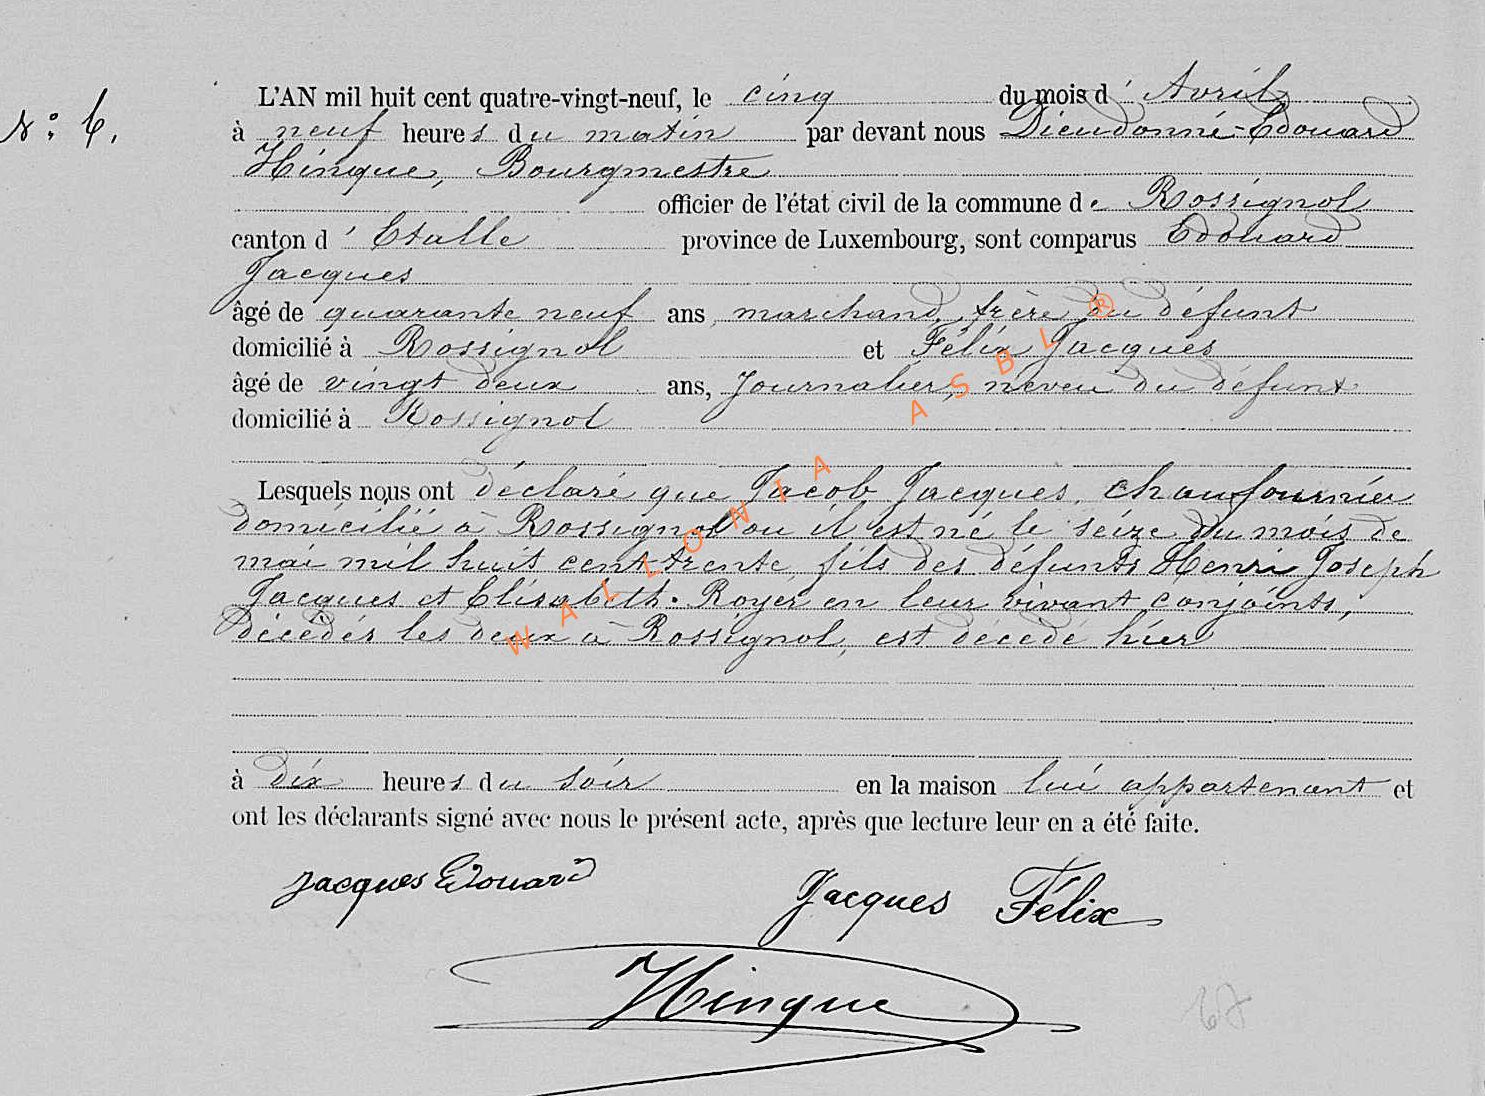 N° 6.
L'AN mil huit cent quatre-vingt-neuf, le cinq du mois d' Avril
à neuf heures du matin par devant nous Dieudonné-Edouard
Hinque, Bourgmestre
officier de l'état civil de la commune de Rossignol
canton d' Etalle province de Luxembourg, sont comparus Edouard
Jacques
âgé de quarante neuf ans, marchand, frère du défunt
domicilié à Rossignol et Félix Jacques
âgé de vingt deux ans, journalier, neveu du défunt
domicilié à Rossignol
Lesquels nous ont déclaré que Jacob Jacques, chaufournier
domicilié à Rossignol ou il est né le seize du mois de
mai mil huit cent trente, fils des défunts Henri Joseph
Jacques et Elisabeth Royer en leur vivant conjoints,
décédés les deux à Rossignol, est décédé hier
à dix heures du soir en la maison lui appartenant et
ont les déclarants signé avec nous le présent acte, après que lecture leur en a été faite.
Jacques Edouard Jacques Félix
Hinque
67
WALLONIA ASBL ®